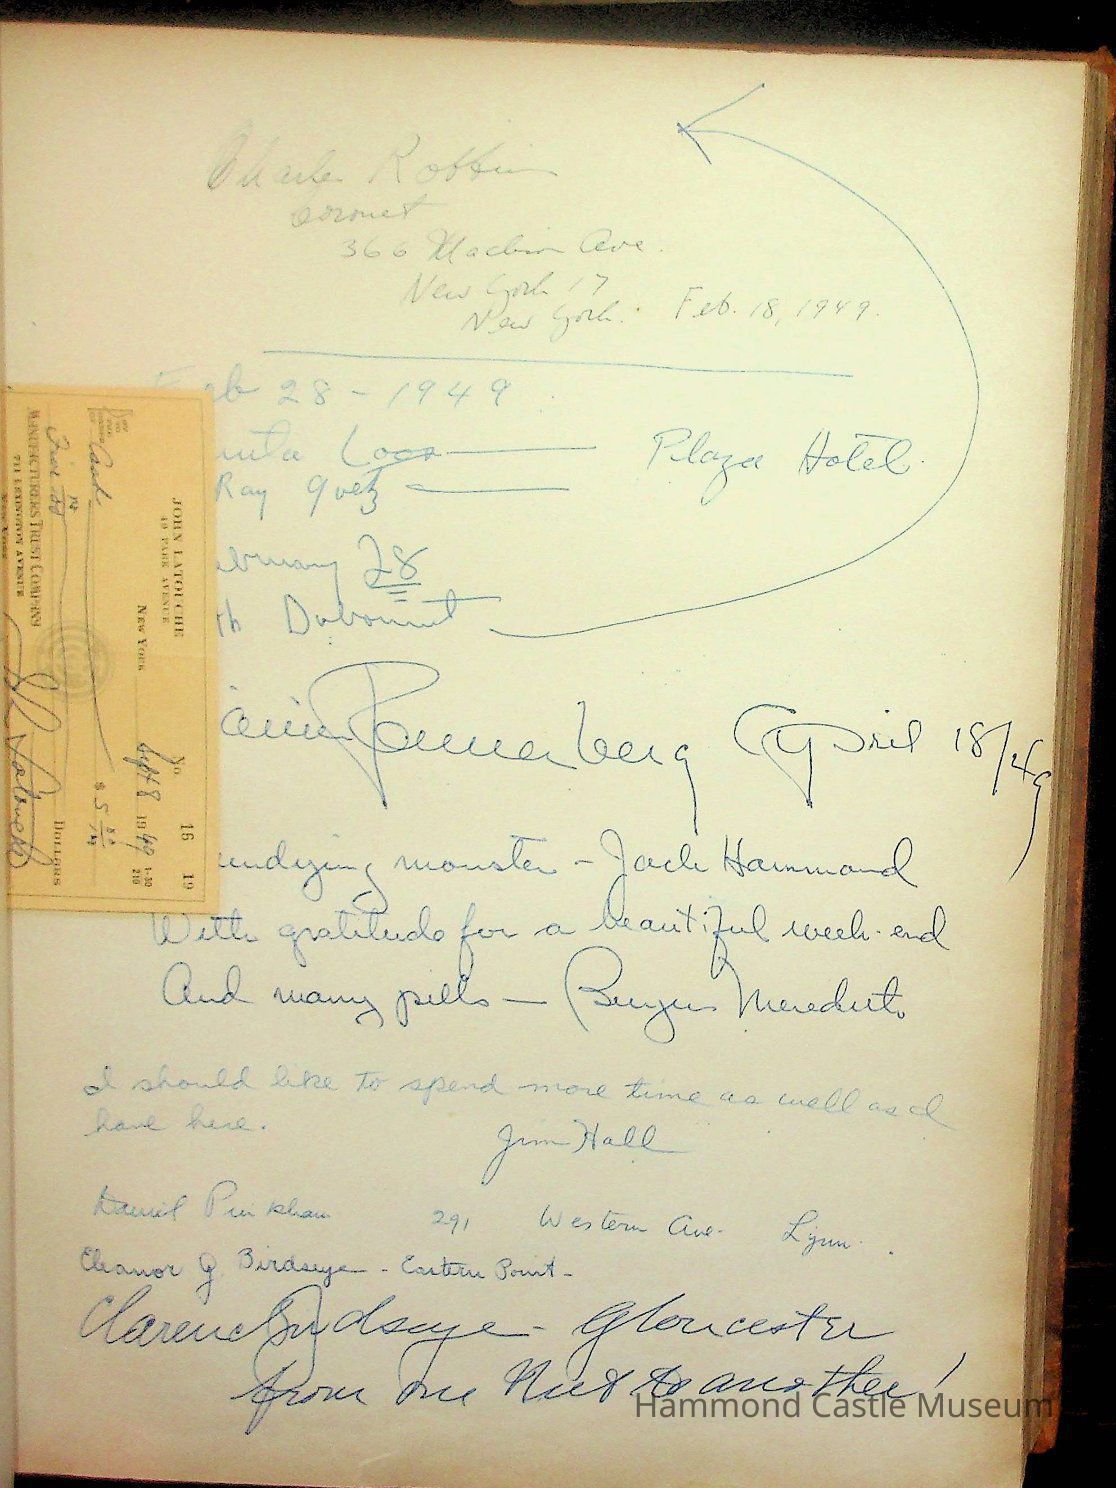 Charles Robbins
Coronet
366 Madison Ave.
New York 17
New York. Feb. 18, 1949.
Feb 28 - 1949
Loos Plaza Hotel
Ray Goetz
28
Dubonnet
April 18/49
undying monster - Jack Hammond
With gratitude for a beautiful week-end
And many pills - Burgess Meredith
I should like to spend more time as well as I
have here.
Jim Hall
Daniel Pinkham 291 Western Ave. Lynn.
Eleanor G Birdseye - Eastern Point -
Clarence Birdseye - Gloucester
from one Nut to another!
JOHN LATOUCHE
19 PARK AVENUE
NEW YORK Sept 8 1949
No. 16
1-30
210
19
Cash $5
Five
DOLLARS
MANUFACTURERS TRUST COMPANY
711 LEXINGTON AVENUE
NEW YORK
Hammond Castle Museum